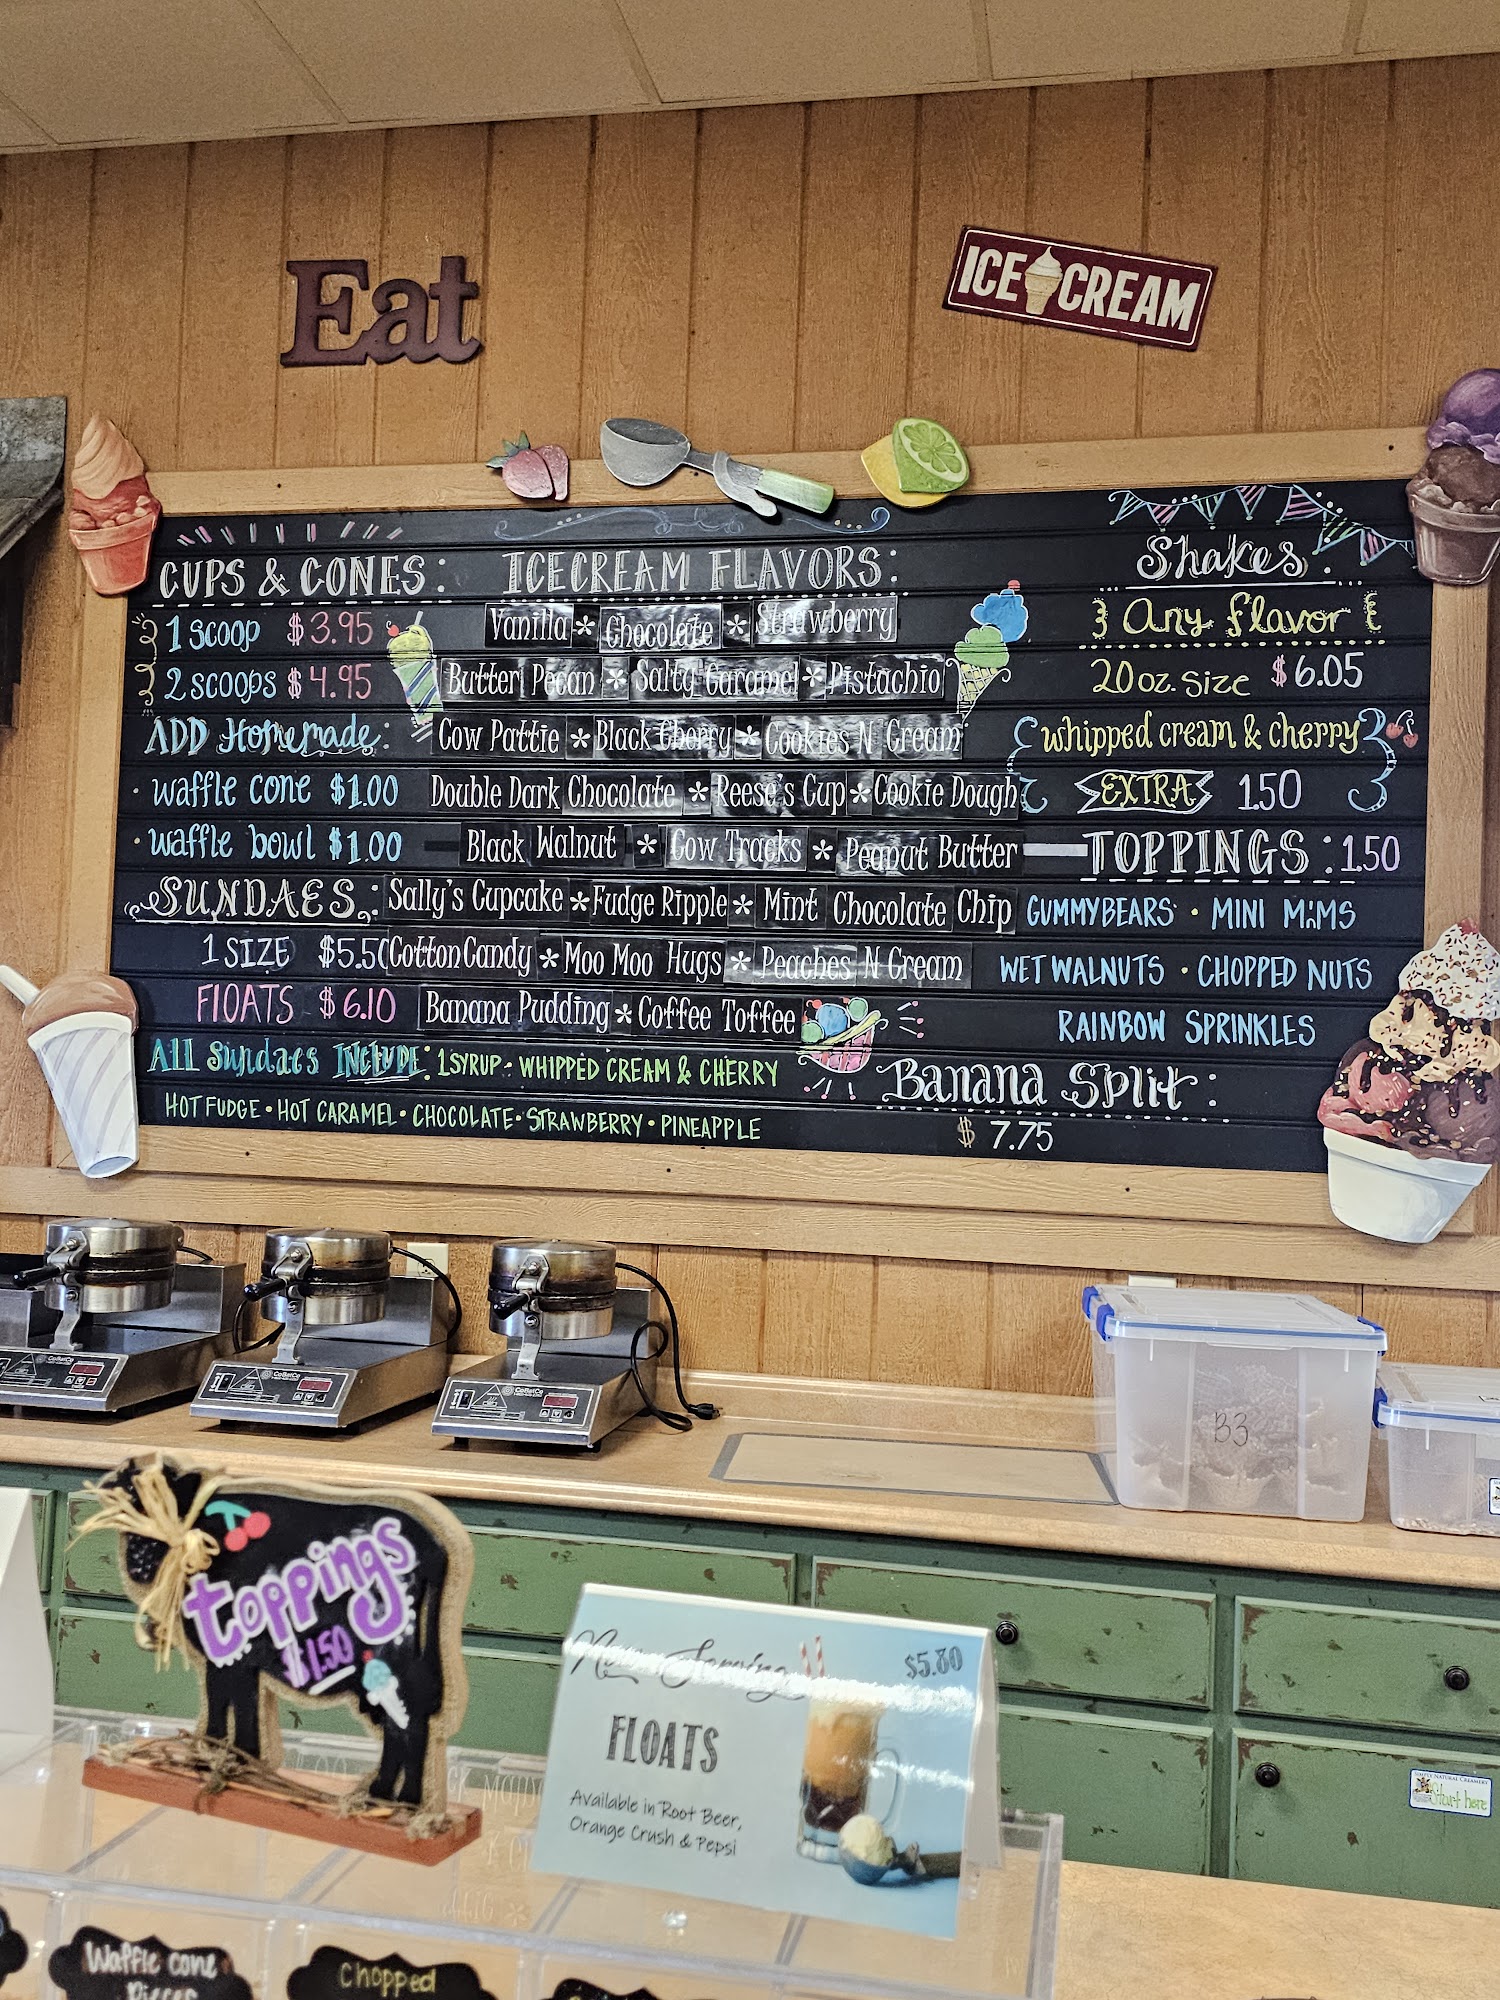 Eat
ICE CREAM
CUPS & CONES:
1 scoop $3.95
2 scoops $4.95
ADD Homemade:
· waffle cone $1.00
· waffle bowl $1.00
SUNDAES:
1 SIZE $5.50
FLOATS $6.10
All Sundaes INCLUDE: 1 SYRUP · WHIPPED CREAM & CHERRY
HOT FUDGE · HOT CARAMEL · CHOCOLATE · STRAWBERRY · PINEAPPLE
ICECREAM FLAVORS:
Vanilla * Chocolate * Strawberry
Butter Pecan * Salty Caramel * Pistachio
Cow Pattie * Black Cherry * Cookies N Cream
Double Dark Chocolate * Reese's Cup * Cookie Dough
Black Walnut * Cow Tracks * Peanut Butter
Sally's Cupcake * Fudge Ripple * Mint Chocolate Chip
Cotton Candy * Moo Moo Hugs * Peaches N Cream
Banana Pudding * Coffee Toffee
Shakes:
Any flavor
20 oz. size $6.05
whipped cream & cherry
EXTRA 1.50
TOPPINGS: 1.50
GUMMYBEARS · MINI M'nMS
WET WALNUTS · CHOPPED NUTS
RAINBOW SPRINKLES
Banana Split:
$ 7.75
CoBatCo
CoBatCo
CoBatCo
B3
toppings
$1.50
Now Serving
$5.80
FLOATS
Available in Root Beer,
Orange Crush & Pepsi
SIMPLY NATURAL CREAMERY
Start here
Waffle cone
Pieces
Chopped